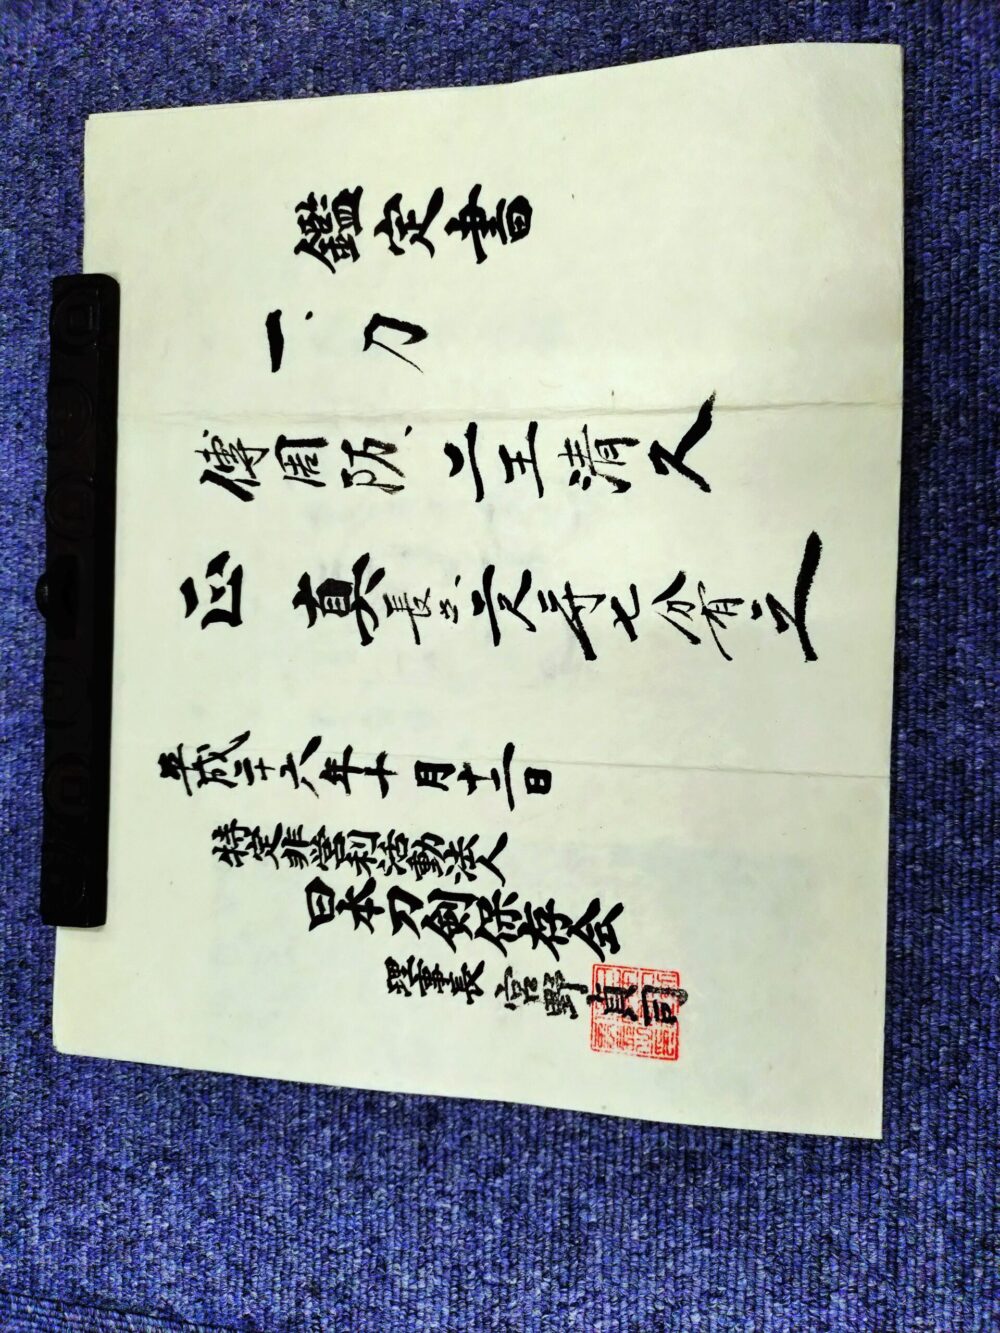 鑑定書
一、刀
傳周防二王清久
正真長サ二尺三寸七分有之
平成二十六年十月十二日
特定非営利活動法人
日本刀剣保存会
理事長 宮野貞司